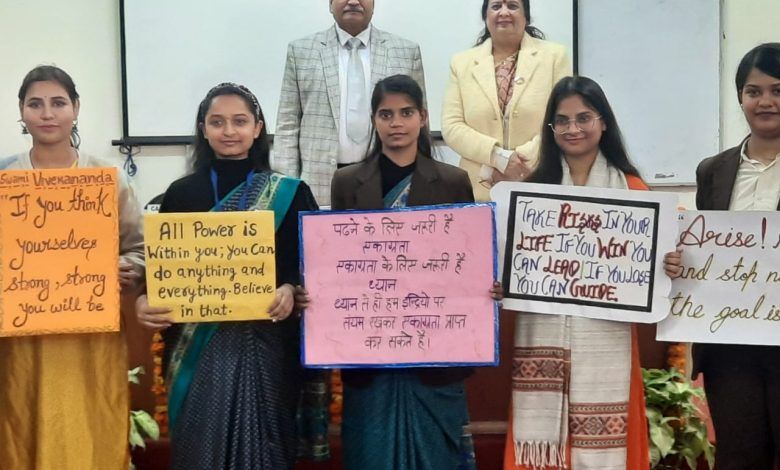 Swami Vivekananda
"If you think
yourselves
strong, strong
you will be
All Power is
Within you; you Can
do anything and
everything. Believe
in that.
पढ़ने के लिए जरूरी है
एकाग्रता
एकाग्रता के लिए जरूरी है
ध्यान
ध्यान से ही हम इन्द्रियों पर
संयम रखकर एकाग्रता प्राप्त
कर सकते है।
TAKE RISKS IN YOUR
LIFE IF YOU WIN YOU
CAN LEAD! IF YOU LOSE
YOU CAN GUIDE.
"Arise!
and stop n
the goal is